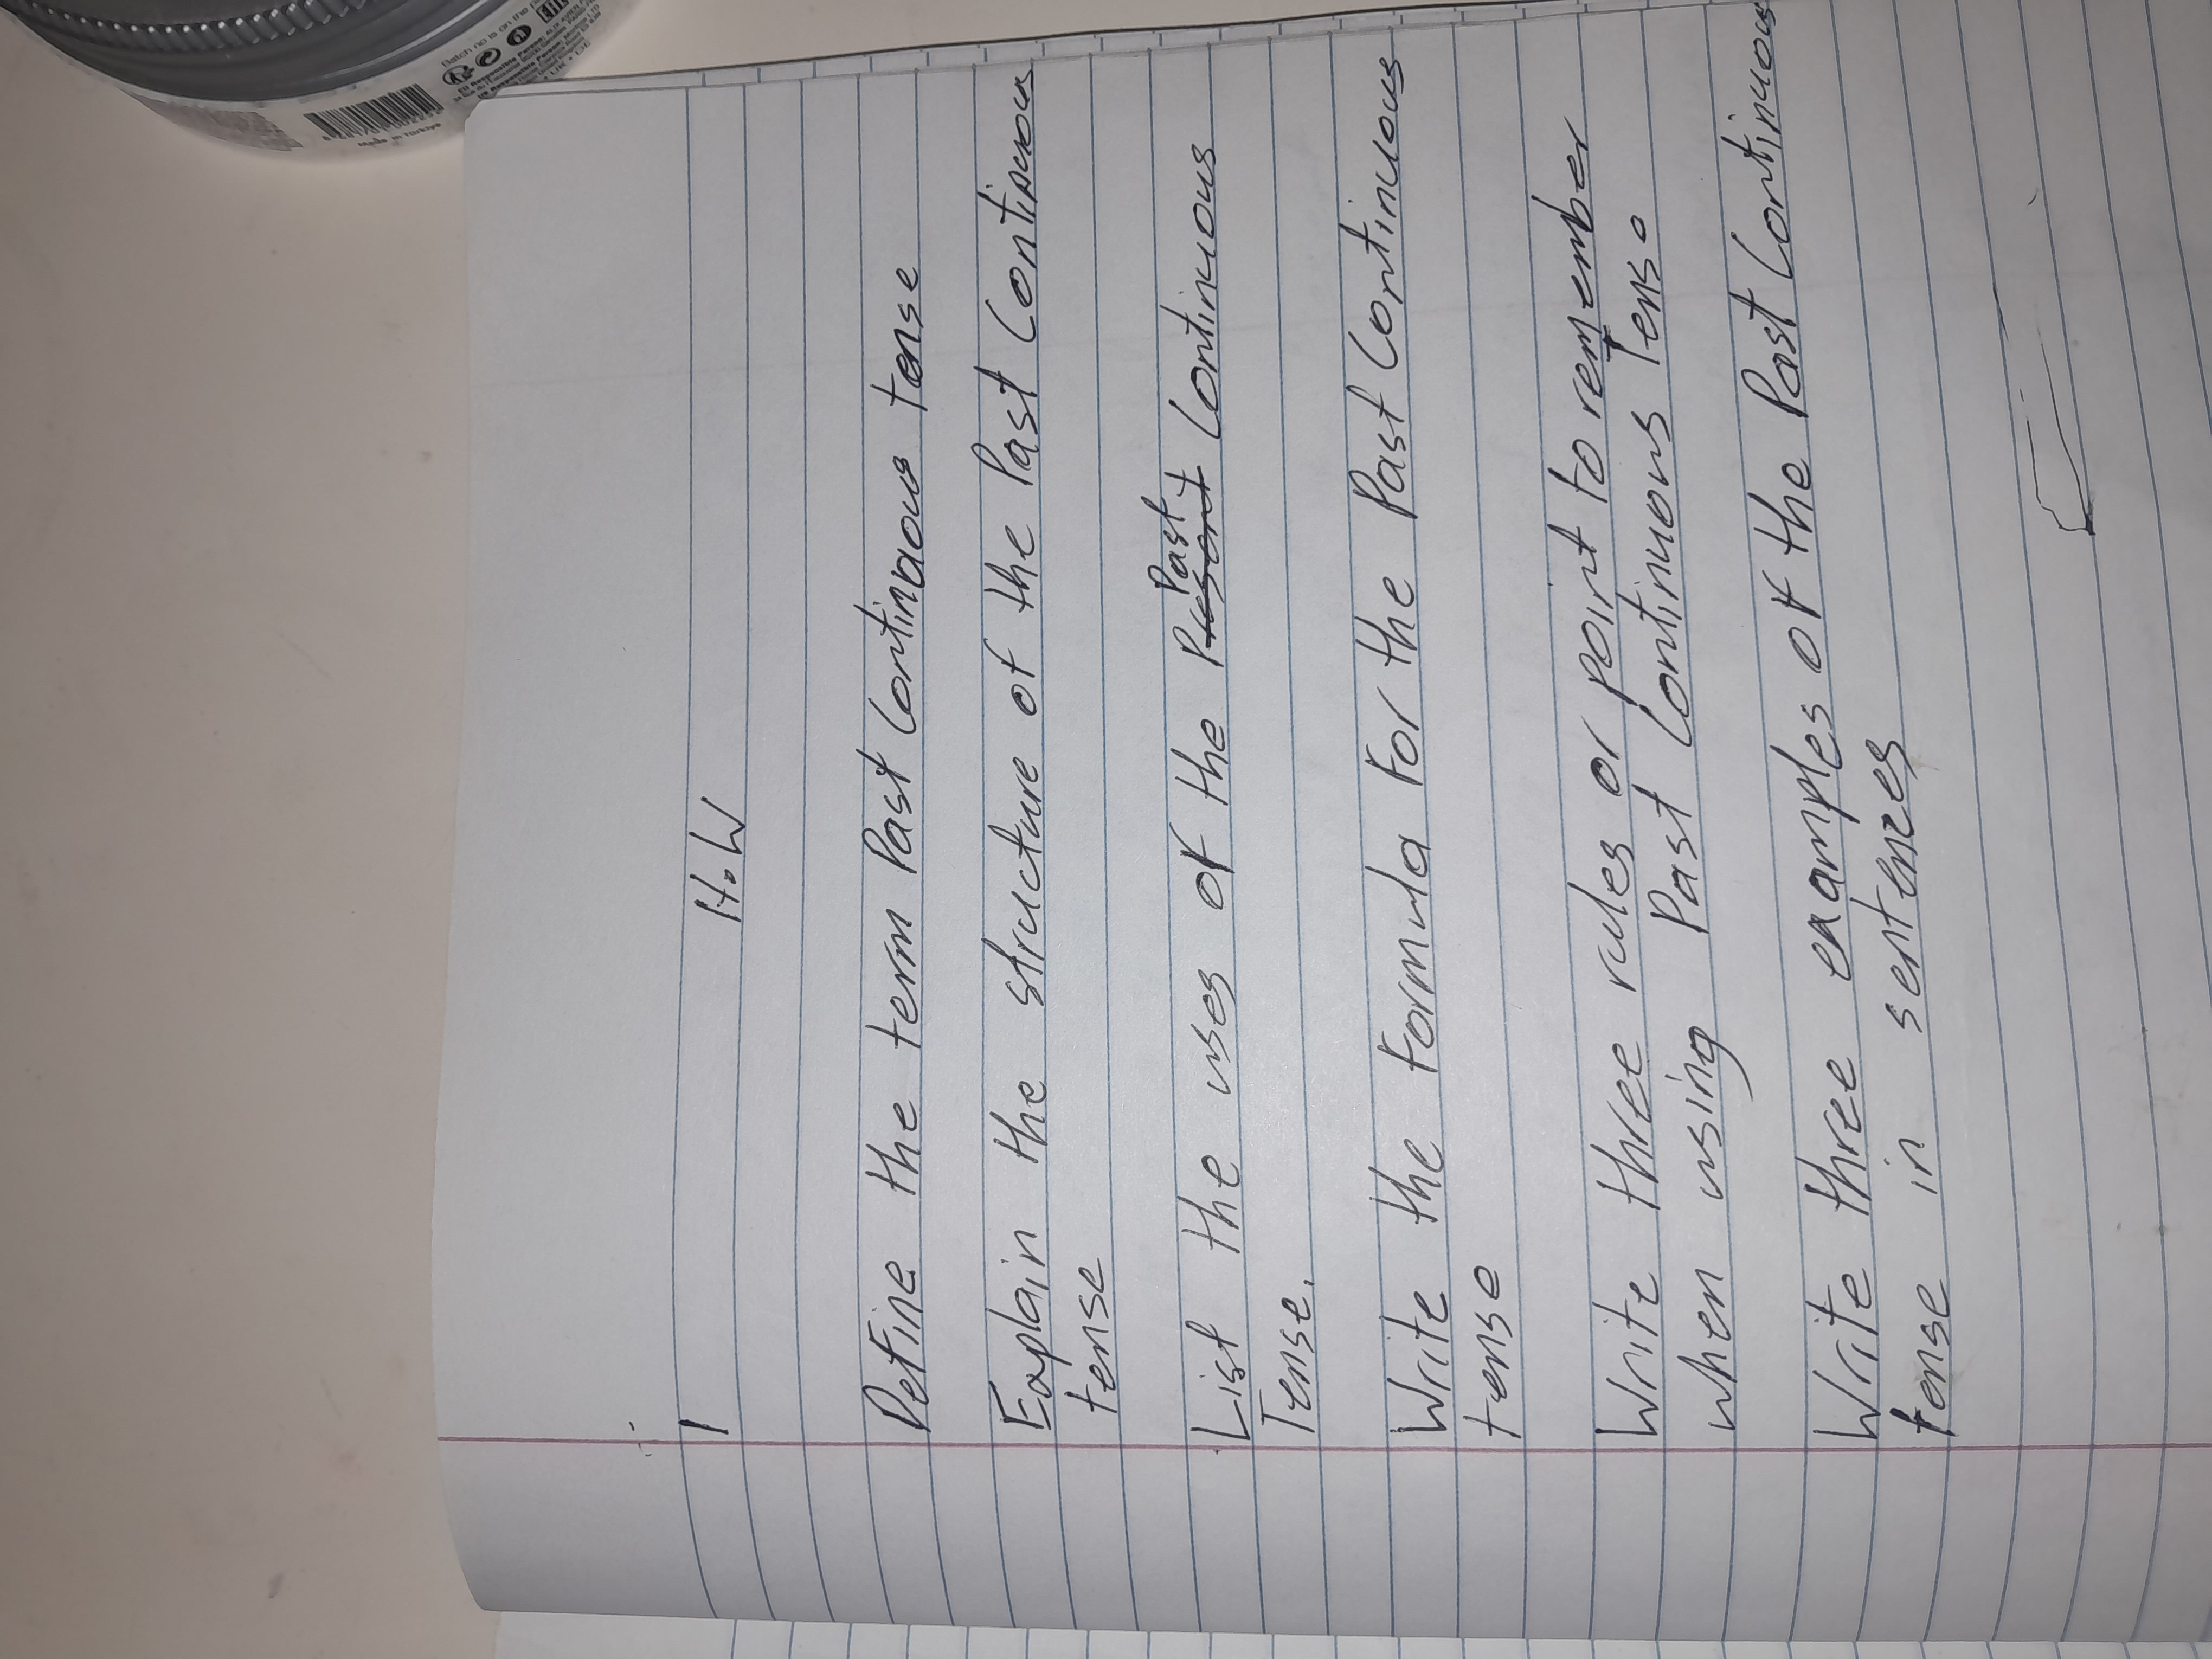 1
H.W
Define the term Past Continuous tense
Explain the structure of the Past Continuous
tense
List the uses of the Present Past Continuous
Tense.
Write the Formula For the Past Continuous
tense
Write three rules or point to remember
when using Past Continuous Tense
Write three examples of the Past Continuous
tense in sentences
Made in Türkiye
Batch no is on the